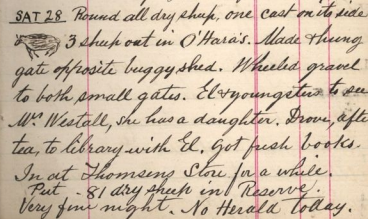 SAT 28 Round all dry sheep, one cast on its side
& 3 sheep out in O'Hara's. Made & hung
gate opposite buggy shed. Wheeled gravel
to both small gates. El & youngsters to see
Mrs Westall, she has a daughter. Drove, after
tea, to library with El. Got fresh books.
In at Thomsens Store for a while.
Put 81 dry sheep in Reserve.
Very fine night. No Herald today.